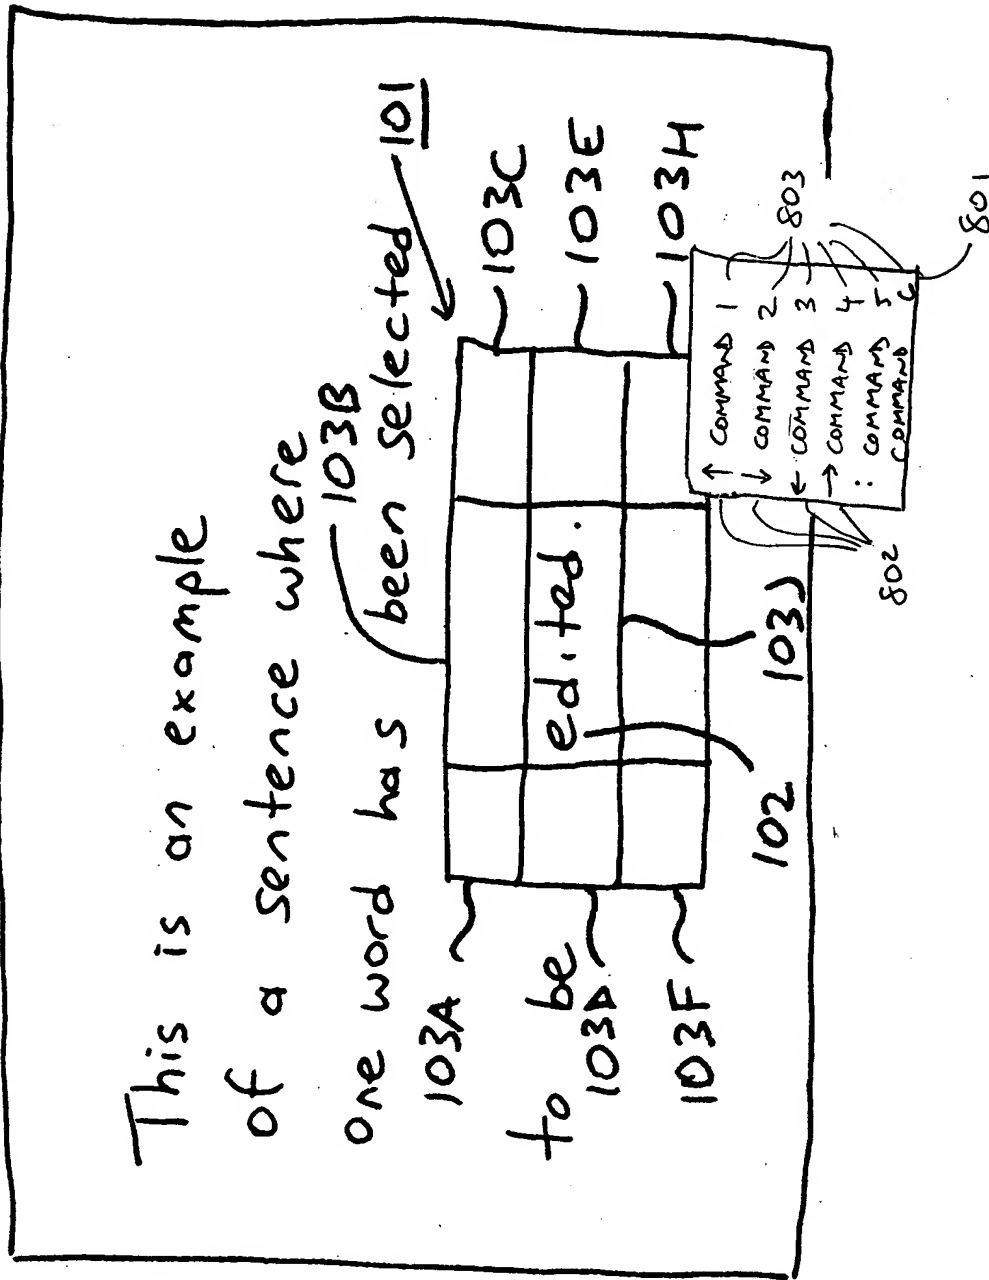 This is an example
of a sentence where
103B
one word has been selected 101
103A 103C
to be edited. 103E
103D
103F 103H
102 103J
↑ COMMAND 1
↓ COMMAND 2
← COMMAND 3
→ COMMAND 4
: COMMAND 5
COMMAND 6
802 803
801